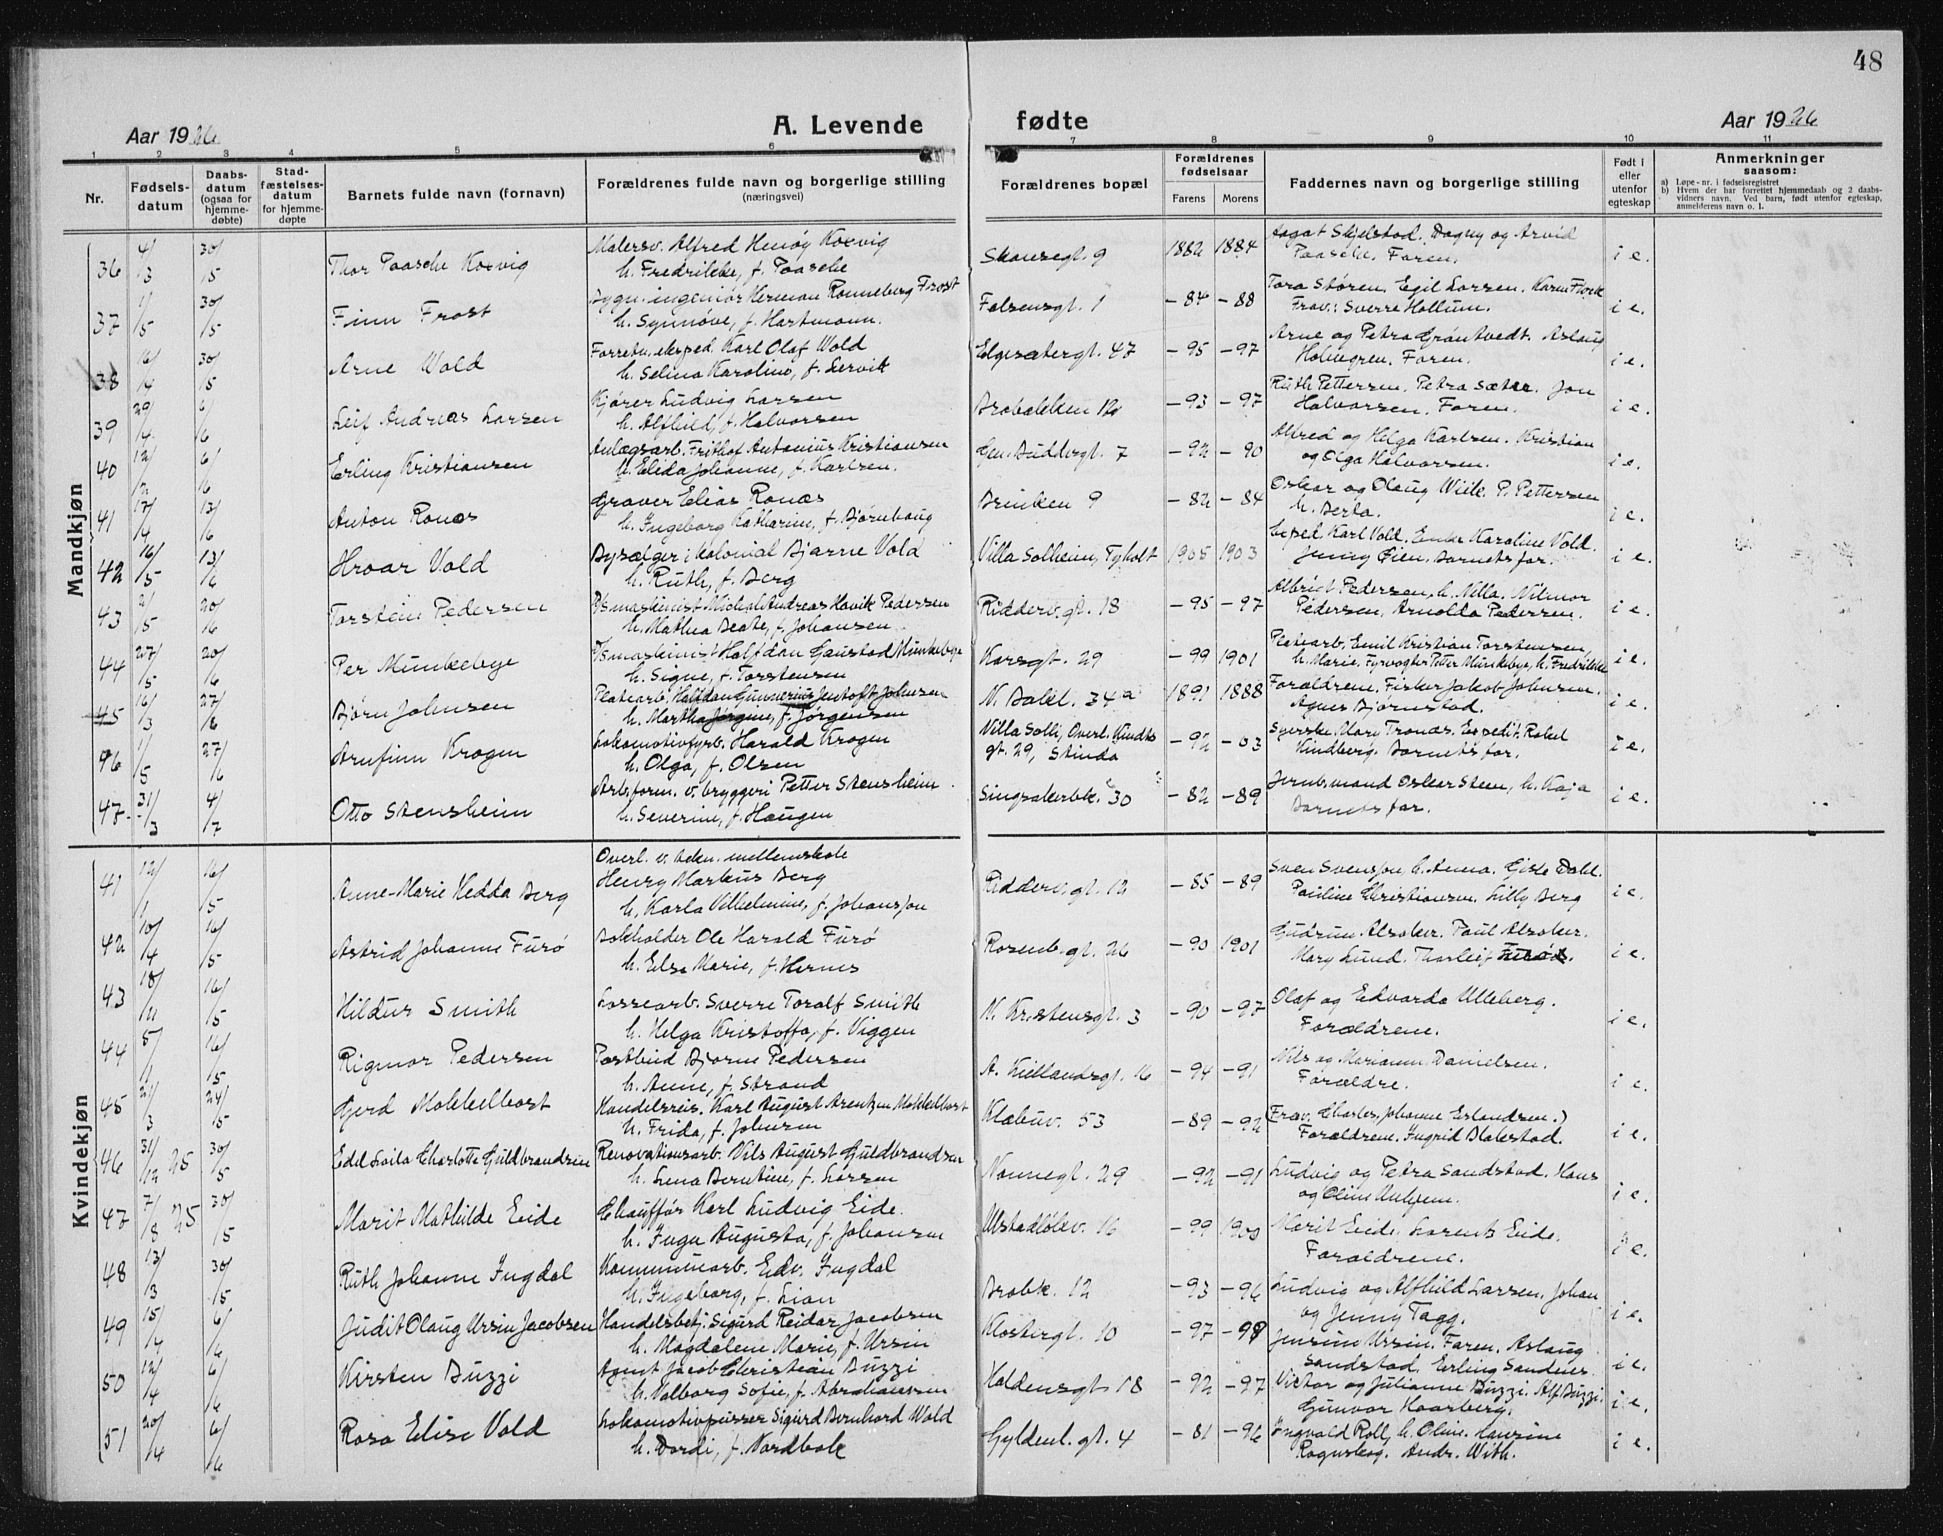 48
Aar 1926
A. Levende fødte
Aar 1926
1 2 3 4 5 6 7 8 9 10 11
Nr.
Fødsels-datum
Daabs-datum (ogsaa for hjemme-døbte)
Stad-fæstelses-datum for hjemme-døpte
Barnets fulde navn (fornavn)
Forældrenes fulde navn og borgerlige stilling (næringsvei)
Forældrenes bopæl
Forældrenes fødselsaar
Farens Morens
Faddernes navn og borgerlige stilling
Født i eller utenfor egteskap
Anmerkninger saasom:
a) Løpe-nr. i fødselsregistret
b) Hvem der har forrettet hjemmedaab og 2 daabs-vidners navn. Ved barn, født utenfor egteskap, anmelderens navn o. l.
Mandkjøn
36 4/3 30/5 Thor Paasche Koxvig Malersv. Alfred Henøy Koxvig Skansegt. 9 1882 1884 Aagat Skjelstad. Dagny og Arvid i e.
h. Fredrikke, f. Paasche Paasche. Faren.
37 1/5 30/5 Finn Frost Bygn.ingeniør Herman Ronneberg Frost Falsensgt. 1 -84 -88 Tora Støren. Egil Larsen. Karen i e.
h. Synnøve, f. Hartmann. Frav: Sverre Hollum.
38 16/4 30/5 Arne Wold Forretn. eksped. Karl Olaf Wold Elgesætergt. 47 -95 -97 Arne og Petra Grøntvedt. Aslaug i e.
h. Selina Karoline, f. Lervik Holmgren. Faren.
39 29/4 6/6 Leif Andreas Larsen Kjører Ludvig Larsen Brobakken 12 -93 -97 Ruth Pettersen. Petra Sæter. Jon i e.
h. Alfhild, f. Halvorsen Halvorsen. Faren.
40 12/2 6/6 Erling Kristiansen Anlægsarb. Frithof Antonius Kristiansen Gen. Budbergt. 7 -92 -90 Alfred og Helga Karlsen. Kristian i e.
h. Elida Johanne, f. Karlsen. og Olga Halvorsen.
41 17/4 13/6 Anton Ronæs Graver Elias Ronæs Brinken 9 -82 -84 Oskar og Olaug Wiik. P. Pettersen i e.
h. Ingeborg Katharine, f. Bjørnhaug h. Berta.
42 16/5 13/6 Hroar Vold Bysælger i kolonial Bjarne Vold Villa Solheim, Tyholt 1905 1903 Exped. Karl Vold. Enke Karoline Vold. i e.
h. Ruth, f. Berg Jenny Øien. Barnets far.
43 2/5 20/6 Torstein Pedersen D/S maskinist Michal Andreas Havik Pedersen Ridderv.gt. 18 -95 -97 Albrigt Pedersen, h. Villa. Vilmor i e.
h. Mathea Beate, f. Johansen Pedersen, Arnolda Pedersen.
44 27/5 20/6 Per Munkebye D/S maskinist Halfdan Gaustad Munkebye Korsgt. 29 -99 1901 Platearb. Emil Kristian Torstensen, i e.
h. Signe, f. Torstensen h. Marie, Fyrvogter Petter Munkebye, h. Fredrikke
45 16/3 27/6 Bjørn Johnsen Platearb. Halfdan Gunnerius Jentoft Johnsen N. Bakl. 34a 1891 1888 Forældrene. Fisker Jakob Johnsen. i e.
h. Martha Jørgine, f. Jørgensen Agnes Bjørnstad.
46 1/5 27/6 Arnfinn Krogen Lokomotivfyrb. Harald Krogen Villa Solli, Overl. Kindts gt. 29, Strinda -92 -03 Syerske Mari Tronæs. Expedit. Rakel i e.
h. Olga, f. Olsen Kindberg. Barnets far.
47 31/3 4/7 Otto Stensheim Arb.form. v. bryggeri Petter Stensheim Singsakerbk. 30 -82 -89 Jernb.mand Oskar Steen, h. Kaja i e.
h. Severine, f. Haugen Barnets far.
Kvindekjøn
41 12/1 16/5 Anne-Marie Hedda Berg Overl. v. tekn. mellemskole
Henry Markus Berg Ridderv.gt. 12 -85 -89 Sven Svensson h. Anna. Gisle Dahl. i e.
h. Karla Vilhelmine, f. Johansson Pauline Christiansen. Lilly Berg
42 10/4 16/5 Astrid Johanne Furø Bokholder Ole Harald Furø Rosenb. gt. 26 -90 1901 Gudrun Alsaker. Paul Alsaker. i e.
h. Else Marie, f. Hernes Mary Lund. Thorleif
43 18/11 16/5 Hildur Smith Lossearb. Sverre Toralf Smith N. Kristensgt. 3 -90 -97 Olaf og Edvarda Ulleberg. i e.
h. Helga Kristoffa, f. Viggen Forældrene.
44 5/1 16/5 Rigmor Pedersen Postbud Bjarne Pedersen A. Kiellandsgt. 16 -94 -91 Nils og Mariann Danielsen. i e.
h. Anne, f. Strand Forældre.
45 21/3 24/5 Gerd Mokkelbost Handelsreis. Karl August Arentzen Mokkelbost Klæbuv. 53 -89 -92 (Frav. Charles, Johanne Erlandsen.) i e.
h. Frida, f. Johnsen Forældrene. Ingrid Blakstad.
46 31/12 25 30/5 Edel Laila Charlotte Guldbrandsen Renovationsarb. Nils August Guldbrandsen Nonnegt. 29 -92 -91 Ludvig og Petra Sandstad. Hans i e.
h. Lena Berntine, f. Larsen og Oline
47 7/8 25 30/5 Marit Mathilde Eide Chauffør Karl Ludvig Eide. Ulstadløkv. 16 -99 1900 Marit Eide. Lorents Eide. i e.
h. Inga Augusta, f. Johansen Forældrene.
48 13/3 30/5 Ruth Johanne Ingdal Kommunearb. Edv. Ingdal Brobk. 12 -93 -96 Ludvig og Alfhild Larsen. Johan i e.
h. Ingeborg, f. Lian og Jenny Tagg.
49 15/4 6/6 Judit Olaug Ursin Jacobsen Handelsbetj. Sigurd Reidar Jacobsen Klostergt. 10 -97 -98 Jensine Ursin. Faren. Aslaug i e.
h. Magdalene Marie, f. Ursin Sandstad. Erling Sandnes.
50 12/4 6/6 Kirsten Buzzi Agent Jacob Christian Buzzi Haldensgt. 18 -92 -97 Victor og Julianne Buzzi. Alf Buzzi. i e.
h. Valborg Sofie, f. Abrahamsen Gunvor Haarberg.
51 20/4 6/6 Rosa Elise Vold Lokomotivpusser Sigurd Bernhard Wold Gyldenl. gt. 4 -81 -96 Ingvald Roll, h. Oline. Laurine i e.
h. Dordi, f. Nordbok Rognskog. Andr. With.